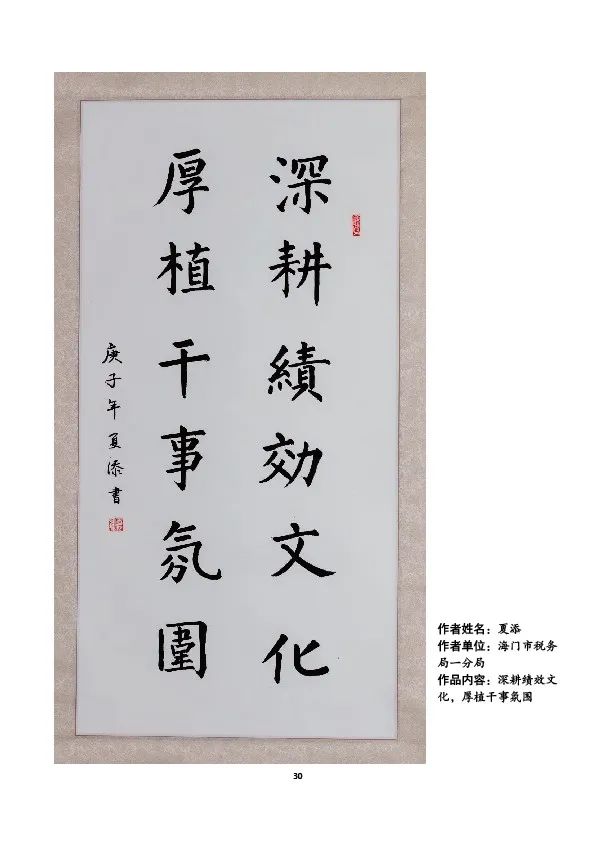 深耕績効文化
厚植干事氛圍
庚子年夏添書
作者姓名：夏添
作者单位：海门市税务
局一分局
作品内容：深耕绩效文
化，厚植干事氛围
30